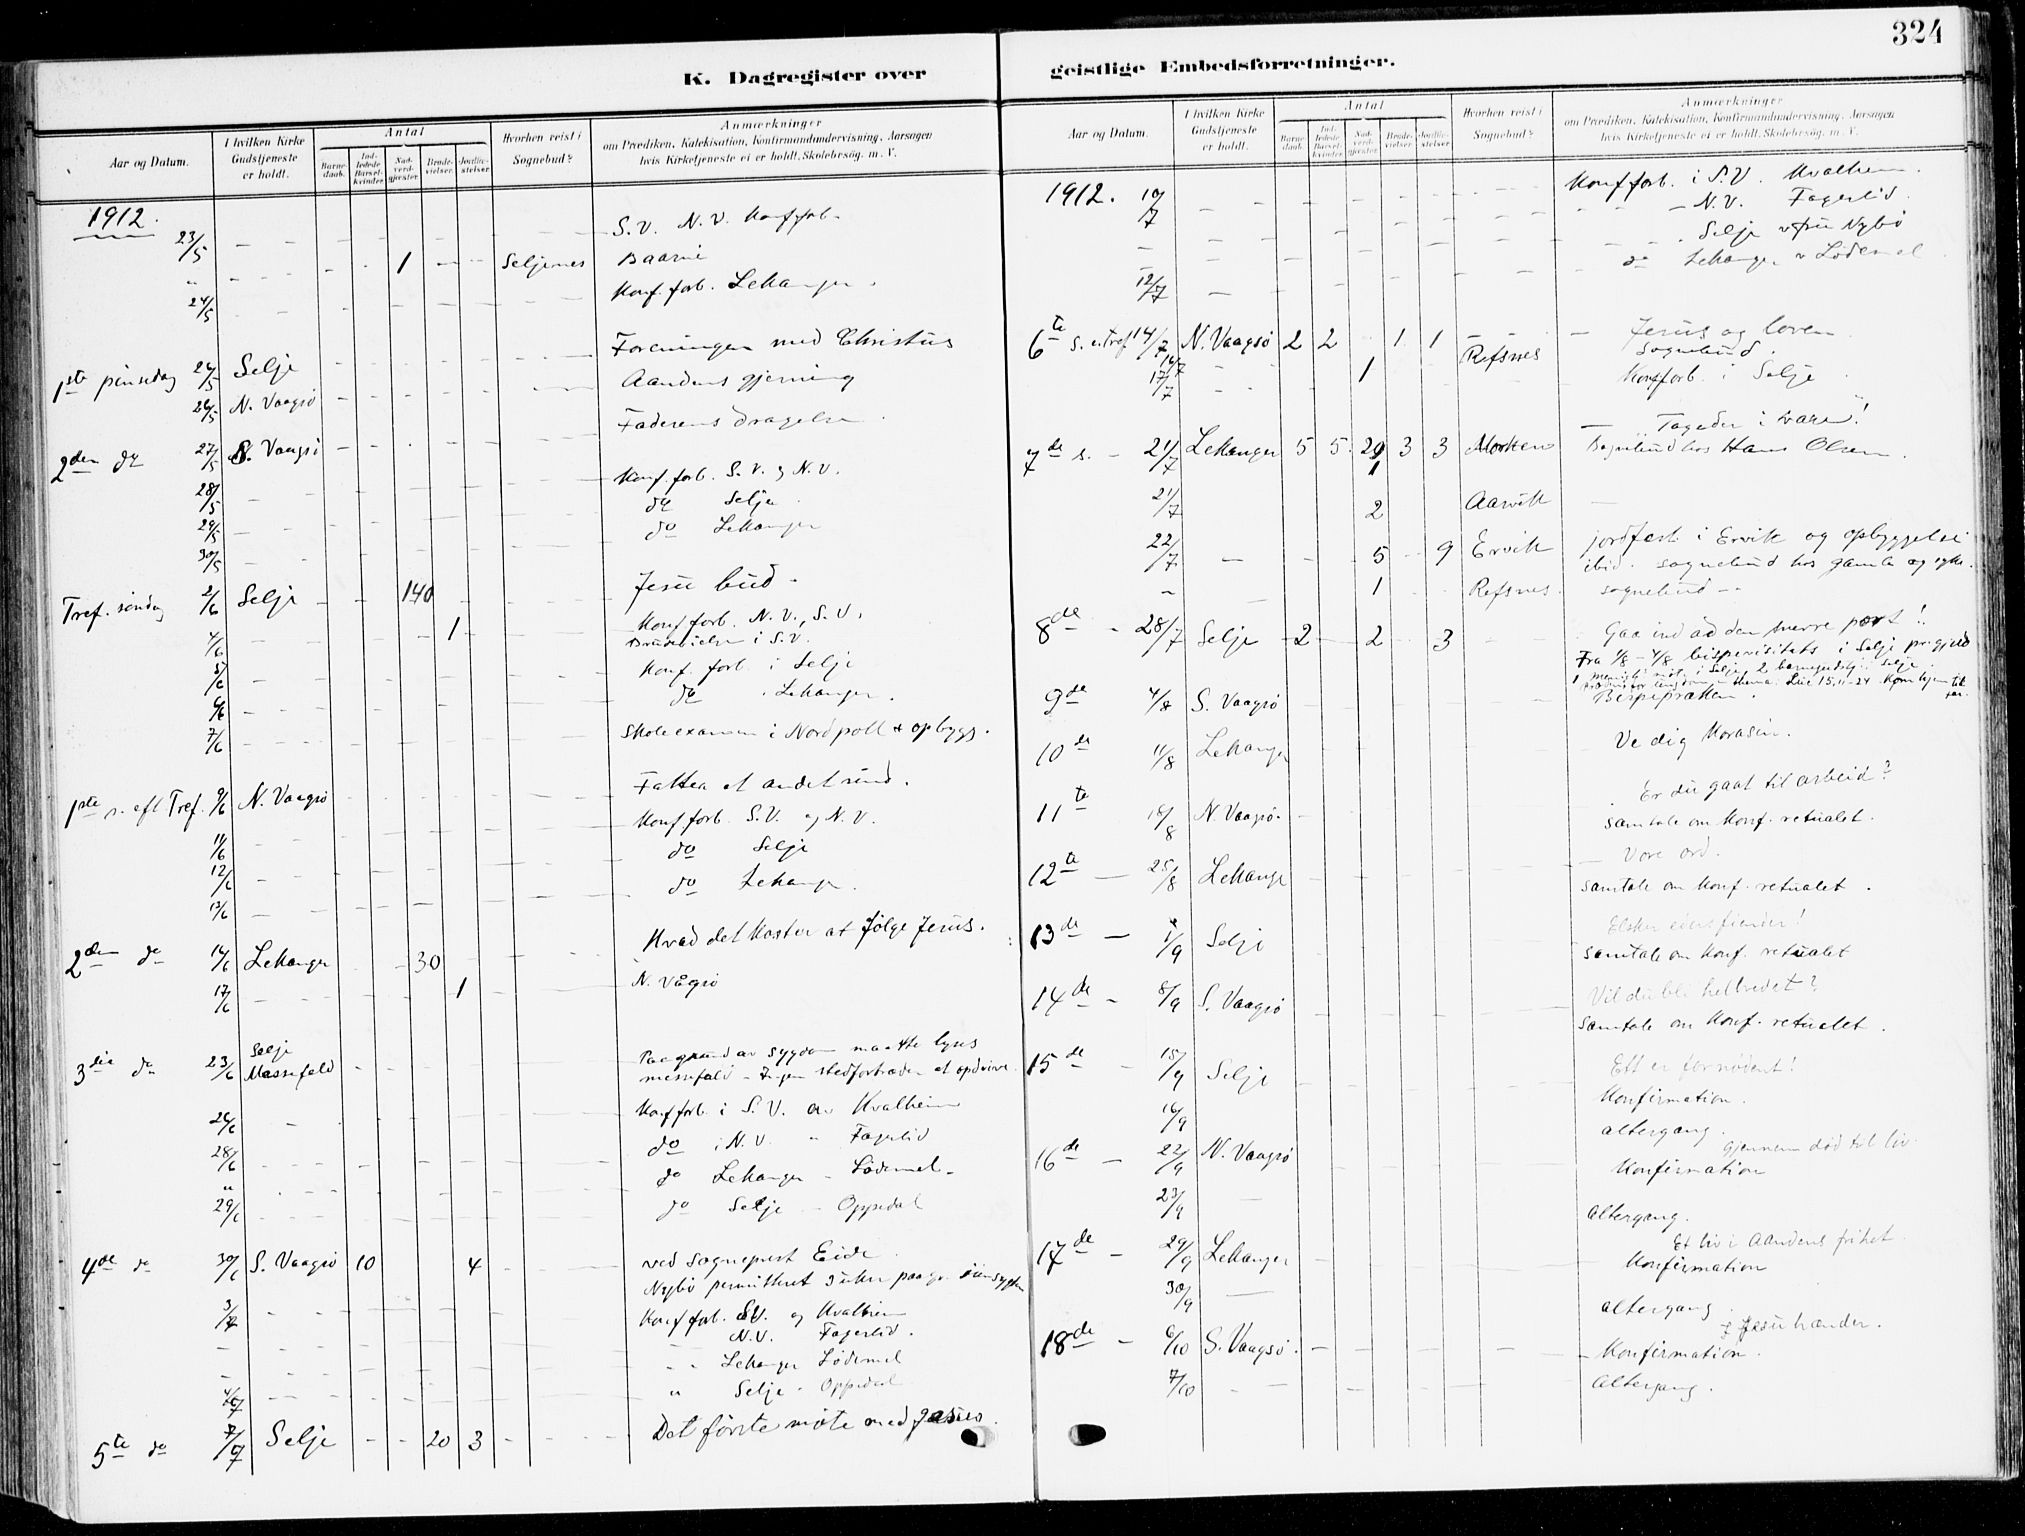 324
K. Dagregister over
geistlige Embedsforretninger.
Aar og Datum.
I hvilken Kirke Gudstjeneste er holdt.
Antal
Barnedaab.
Indledede Barselkvinder.
Nadverdgjester.
Brudevielser.
Jordfæstelser.
Hvorhen reist i Sognebud?
Anmærkninger
om Prædiken, Katekisation, Konfirmandundervisning, Aarsagen hvis Kirketjeneste ei er holdt, Skolebesøg. m. V.
1912.
23/5 S.V. N.V. Konf.forb.
" 1 Seljenes
24/5 Konf. forb. Lekanger.
1ste pinsedag 26/5 Selje Foreningen med Christus
26/5 N. Vaagsø Aandens gjerning
2den do 27/5 S. Vaagsø Faderens dragelse
28/5 Konf. forb. S.V. og N.V.
29/5 do Selje
30/5 do Lekanger
Tref. søndag 2/6 Selje 140 Jesu bud
4/6 1 Konf forb. N.V., S.V.
Brudevielse i S.V.
5/6 Konf. forb i Selje
6/6 do Lekanger.
7/6 Skoleexamen i Nordpoll & opbygg.
1ste s. eft Tref. 9/6 N. Vaagsø
11/6 Konf forb. S.V. og N.V.
12/6 do Selje
13/6 do Lekanger.
2den do 16/6 Lekanger 30 Hvad det koster at følge Jesus.
17/6 1 N. Vågsø
3die do 23/6 Selje
Messefald Paa grund av sygdom maatte lyses
messefald - Ingen stedfortræder at opdrive.
26/6 Konf forb. i S.V. av Kvalheim
28/6 do i N.V. " Fagerlid
" do Lekanger - Lødemel
29/6 do Selje - Oppedal
4de do 30/6 S. Vaagsø 10 4 ved sogneprest Eide
Nybø permitteret 3 uker paa gr.
3/7 Konf forb. S.V. og Kvalheim
N.V. Fagerlid.
Lekanger Lødemel
4/7 " Selje - Oppedal
5te do 7/7 Selje 20 3 Det første møte med Jesus.
Aar og Datum.
I hvilken Kirke Gudstjeneste er holdt.
Antal
Barnedaab.
Indledede Barselkvinder.
Nadverdgjester.
Brudevielser.
Jordfæstelser.
Hvorhen reist i Sognebud?
Anmærkninger
om Prædiken, Katekisation, Konfirmandundervisning, Aarsagen hvis Kirketjeneste ei er holdt, Skolebesøg. m. V.
1912. 10/7 Konf forb. i S.V. Kvalheim.
N.V. Fagerlid.
Selje v fru Nybø
12/7 do Lekanger v Lødemel
6te s. e. Tref 14/7 N. Vaagsø 2 2 1 1 Jesus og loven
16/7 1 Refsnes Sognebud.
17/7 Konf forb. i Selje
7de s. - 21/7 Lekanger 5 5 29 3 3 Tag eder i vare!
1 Morken Sognebud hos Hans Olsen.
21/7 2 Aarvik
22/7 5 9 Ervik jordfest i Ervik og opbyggelse
ibid. sognebud hos gamle og syke.
" 1 Refsnes. sognebud
8de - 28/7 Selje 2 2 3 Gaa ind ad den snevre port!
Fra 1/8 - 4/8 bispevisitats i Selje prgjeld
9de 4/8 S. Vaagsø
10de 11/8 Lekanger Ve dig Korasin.
11te 18/8 N. Vaagsø Er du gaat til arbeid?
samtale om konf. ritualet.
12te 25/8 Lekanger Vore ord.
samtale om konf. ritualet.
13de 1/9 Selje Elsker eders fiender!
samtale om konf. ritualet
14de 8/9 S. Vaagsø Vil du bli helbredet?
samtale om konf. ritualet.
15de 15/9 Selje Ett er fornødent!
Konfirmation.
16/9 altergang.
16de 22/9 N. Vaagsø Gjennem død til liv.
Konfirmation
23/9 Altergang.
17de 29/9 Lekanger Et liv i Aandens frihet.
Konfirmation
30/9 altergang
18de 6/10 S. Vaagsø. I Jesu hænder.
Konfirmation.
7/10 Altergang.